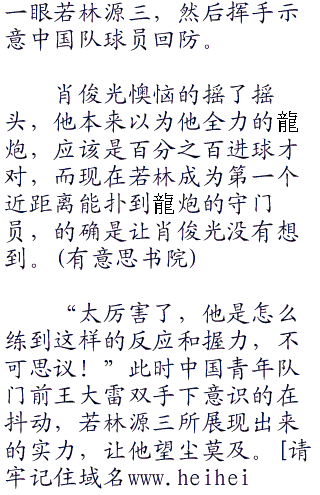 一眼若林源三，然后挥手示
意中国队球员回防。
肖俊光懊恼的摇了摇
头，他本来以为他全力的龍
炮，应该是百分之百进球才
对，而现在若林成为第一个
近距离能扑到龍炮的守门
员，的确是让肖俊光没有想
到。(有意思书院)
“太厉害了，他是怎么
练到这样的反应和握力，不
可思议！”此时中国青年队
门前王大雷双手下意识的在
抖动，若林源三所展现出来
的实力，让他望尘莫及。[请
牢记住域名www.heihei